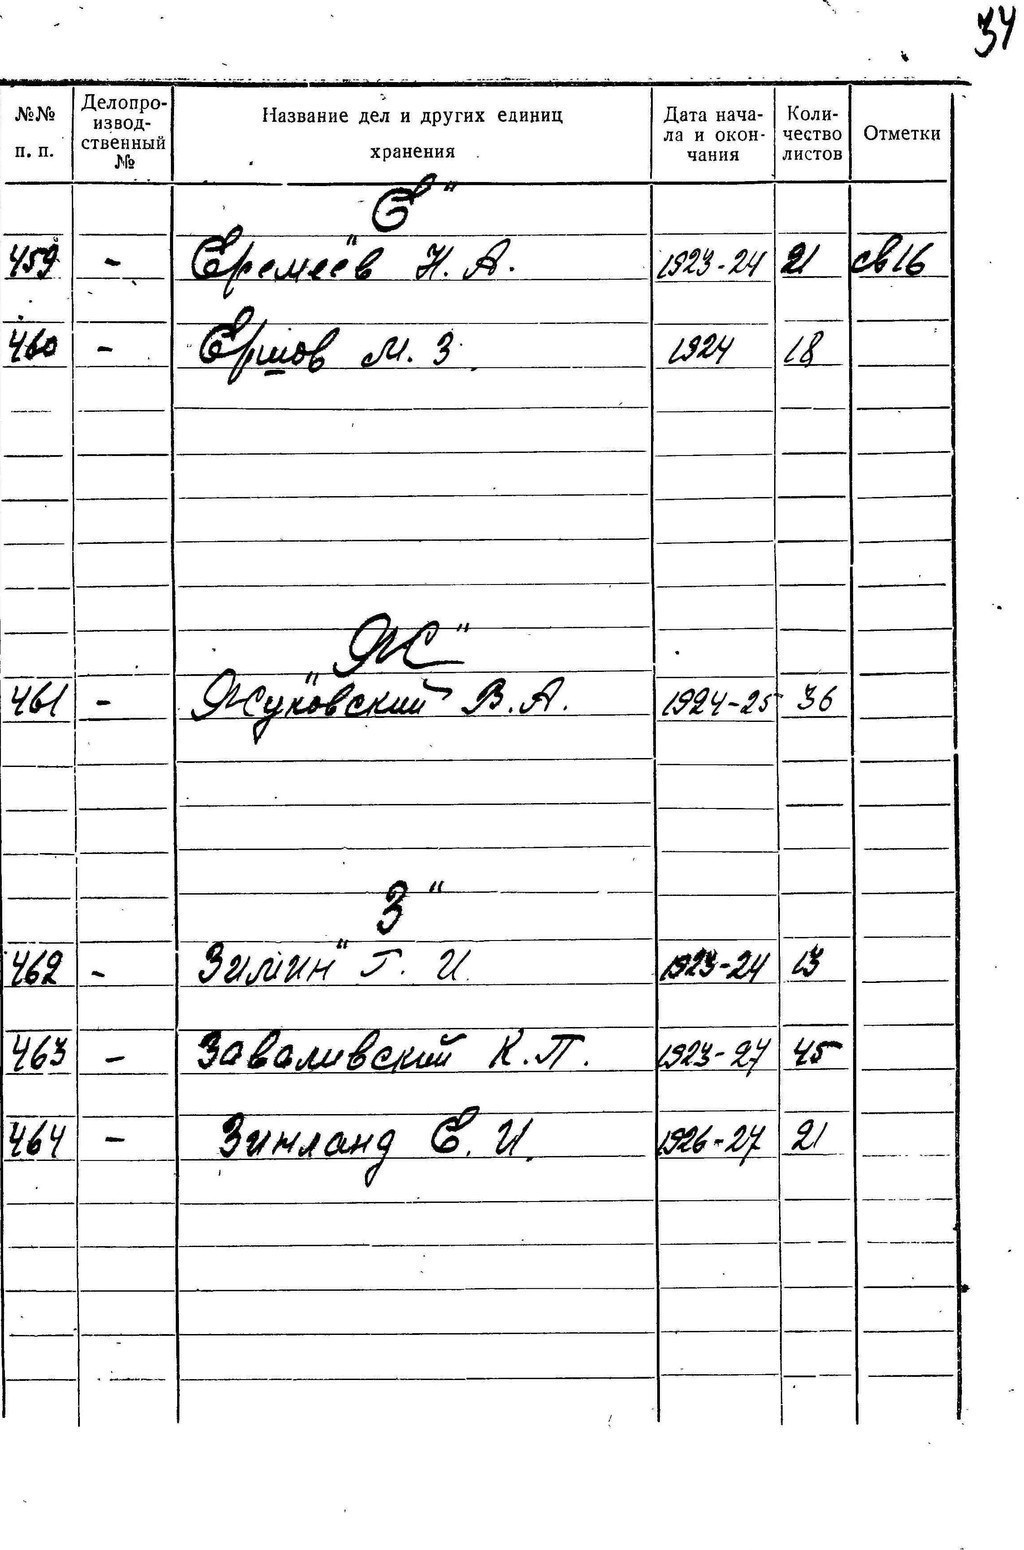 34
№№ п. п. Делопроизводственный № Название дел и других единиц хранения Дата начала и окончания Количество листов Отметки
Е"
459 - Еремеев Н. А. 1923-24 21 св16
460 - Ершов М. З. 1924 18
"Ж"
461 - Жуковский В. А. 1924-25 36
З"
462 - Зимин Г. И. 1923-24 13
463 - Заваливский К. П. 1923-27 45
464 - Зинланд Е. И. 1926-27 21